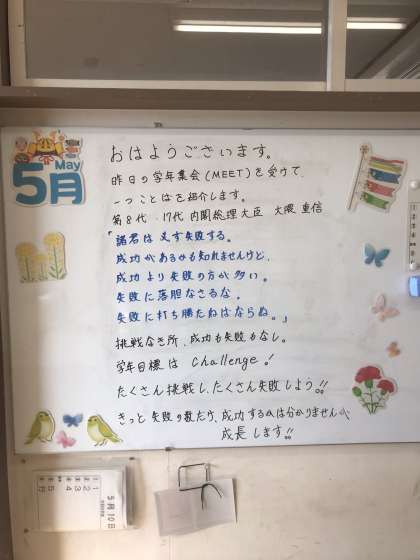 May
5月
おはようございます。
昨日の学年集会(MEET)を受けて、
一つことばを紹介します。
第8代・17代 内閣総理大臣 大隈重信
「諸君は必ず失敗する。
成功があるかも知れませんけど、
成功より失敗の方が多い。
失敗に落胆なさるな。
失敗に打ち勝たねばならぬ。」
挑戦なき所、成功も失敗もなし。
学年目標は Challenge!
たくさん挑戦し、たくさん失敗しよう!!
きっと失敗の数だけ、成功するかは分かりませんが
成長します!!
5月10日